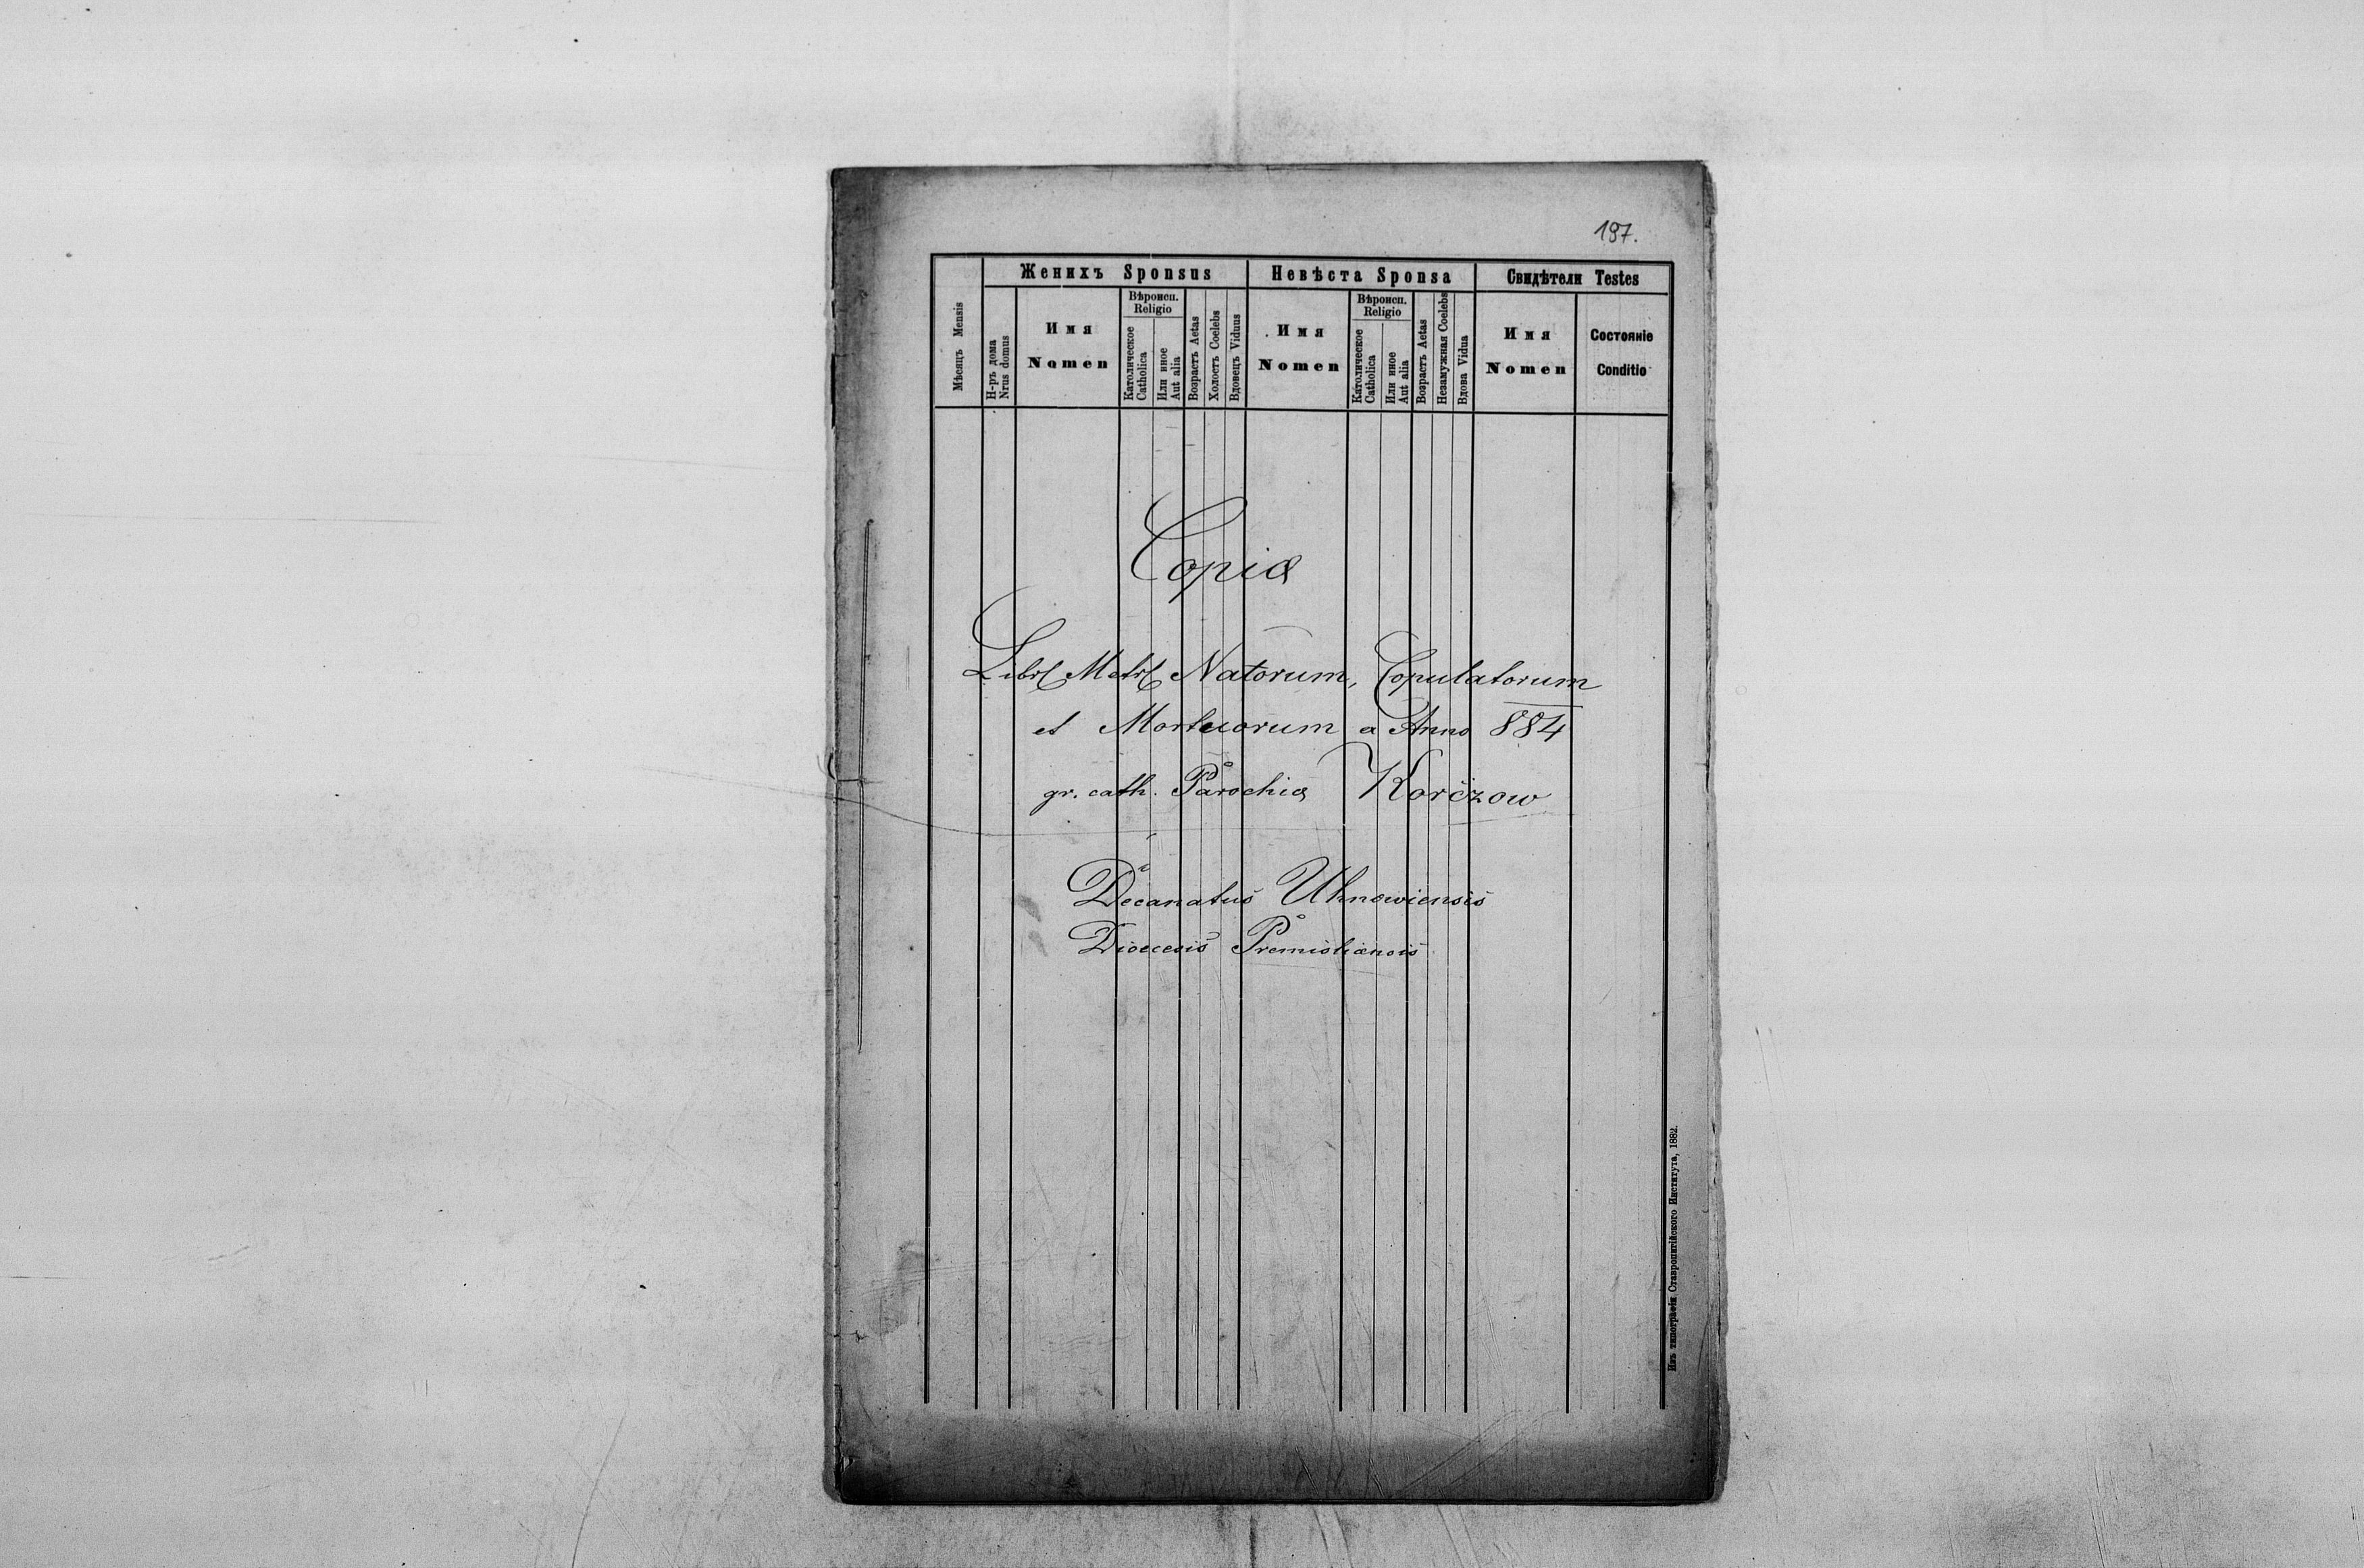 197.
Женихъ Sponsus Невѣста Sponsa Свидѣтели Testes
Мѣсяцъ Mensis
Н-ръ дома
Nrus domus
Имя
Nomen
Вѣроисп.
Religio
Католическое
Catholica
Или иное
Aut alia
Возрастъ Aetas
Холостъ Coelebs
Вдовецъ Viduus
Имя
Nomen
Вѣроисп.
Religio
Католическое
Catholica
Или иное
Aut alia
Возрастъ Aetas
Незамужная Coelebs
Вдова Vidua
Имя
Nomen
Состояніе
Conditio
Copia
Libri Metri Natorum, Copulatorum
et Mortuorum a Anno 884
gr. cath. Parochia Korczow
Decanatus Uhnowiensis
Dioecesis Premisliensis
Изъ типографіи Ставропигійского Института, 1882.